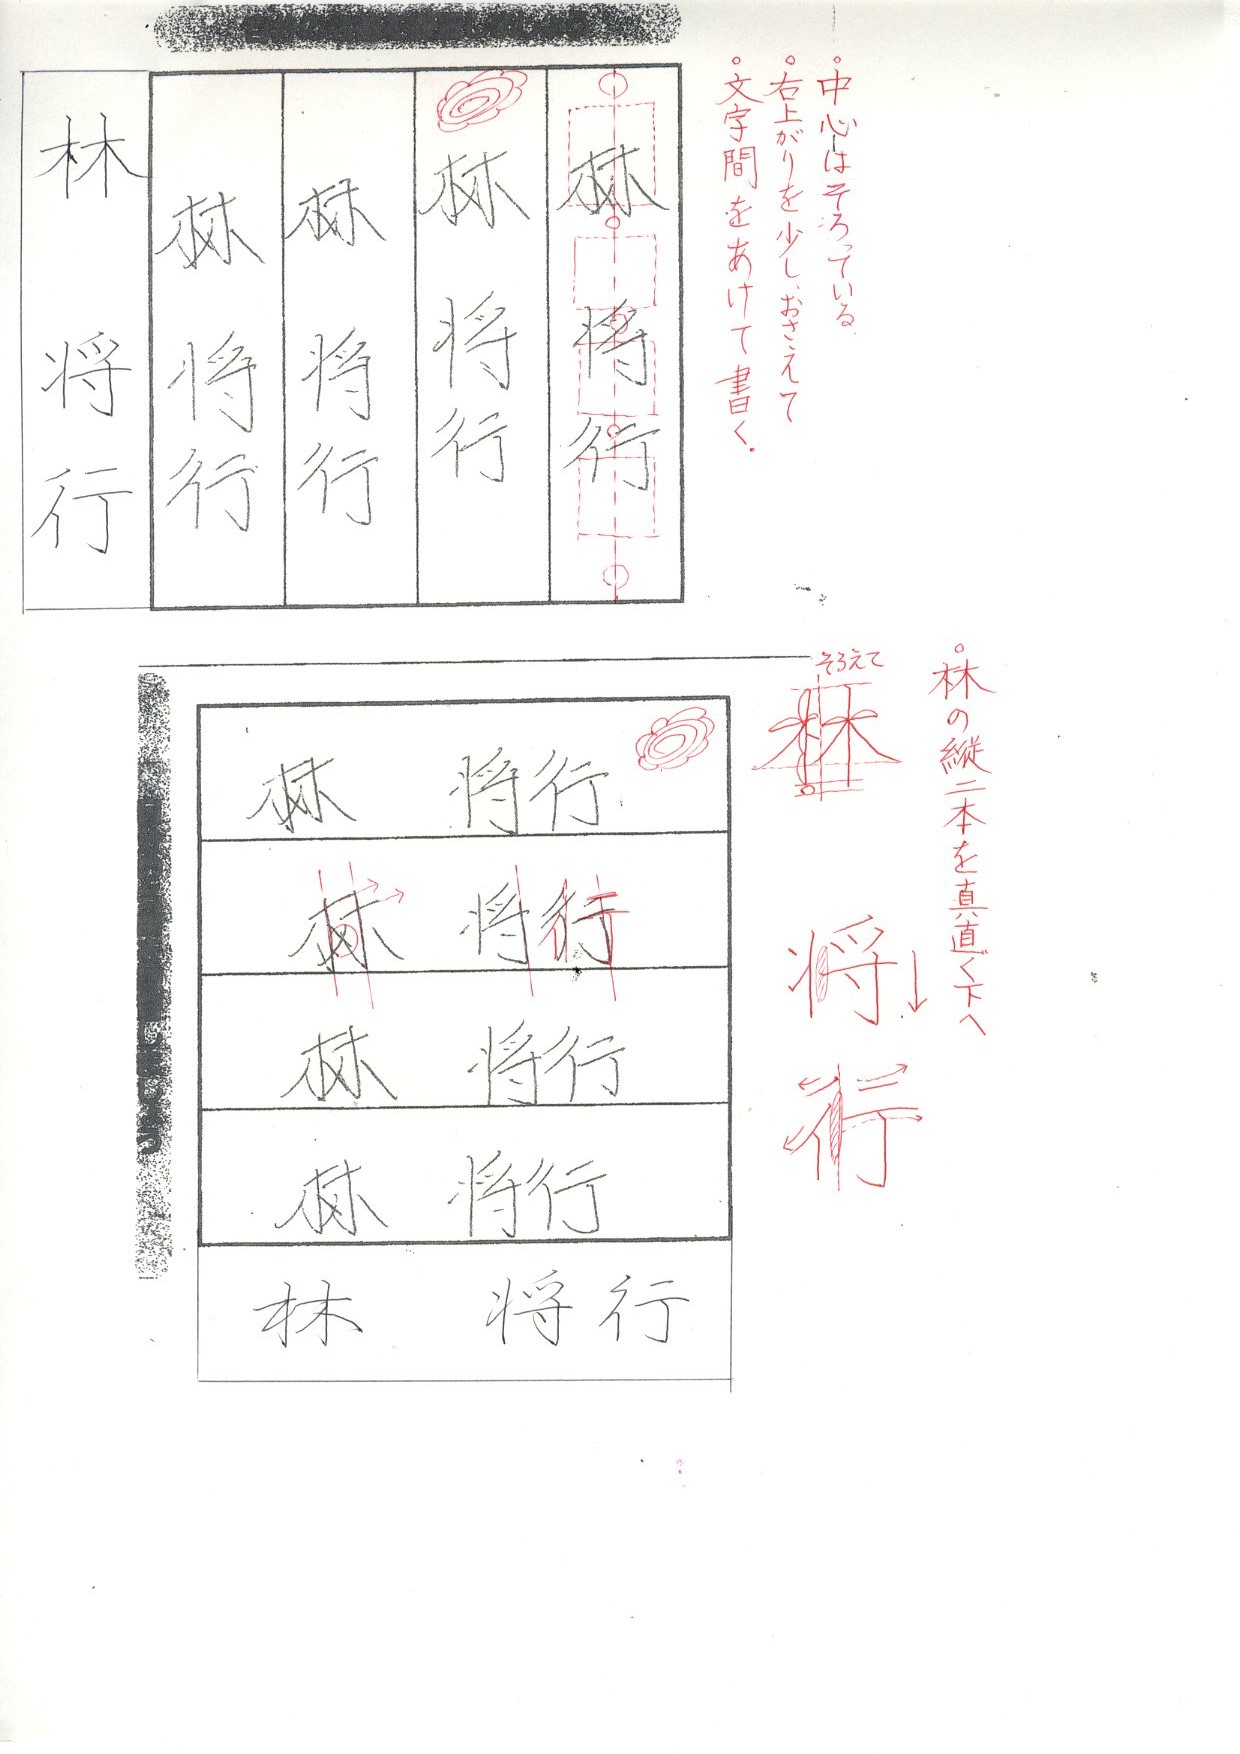 ・中心はそろっている
・右上がりを少しおさえて
・文字間をあけて書く。
林将行
林将行
林将行
林将行
林 将行
・林の縦二本を真直ぐ下へ
そろえて
林
将
行
林 将行
林 将行
林 将行
林 将行
林 将行